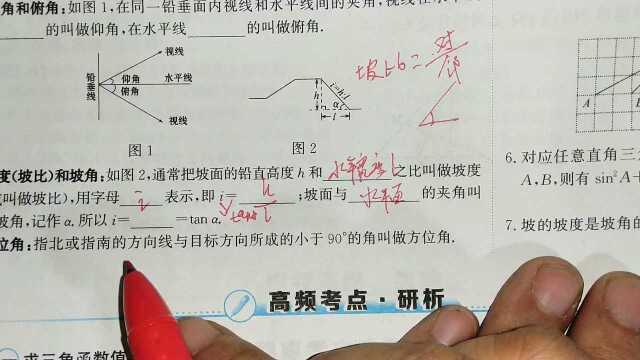 角和俯角:如图1,在同一铅垂面内视线和水平线间的夹角,视线在水平
的叫做仰角,在水平线______的叫做俯角.
视线
铅垂线
仰角
俯角
水平线
视线
图1
h
i=h:l
α
l
图2
坡比b=对/邻
度(坡比)和坡角:如图2,通常把坡面的铅直高度h和 水平宽度l 之比叫做坡度
叫做坡比),用字母 i 表示,即i= h/l ;坡面与 水平面 的夹角叫
坡角,记作α.所以i=______=tan α.
tanα
位角:指北或指南的方向线与目标方向所成的小于90°的角叫做方位角.
高频考点·研析
求三角函数值
A
6. 对应任意直角三
A,B,则有sin²A+
7. 坡的坡度是坡角的